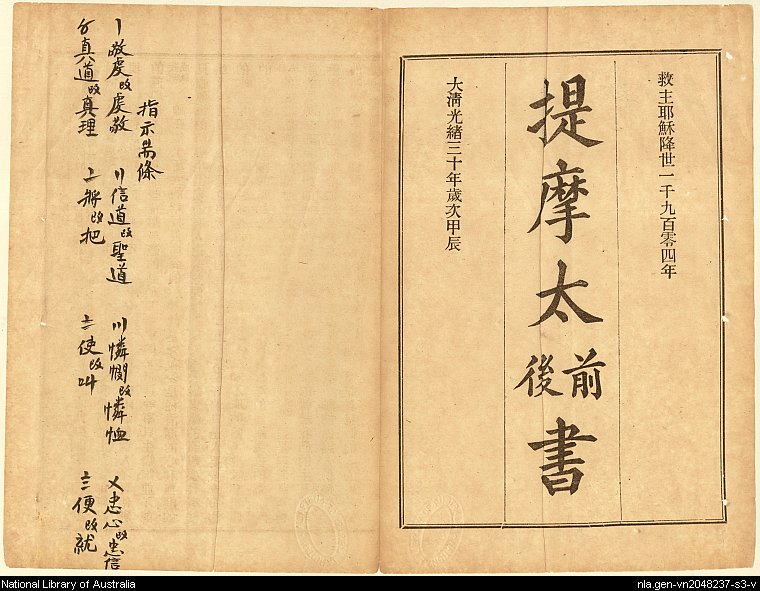 救主耶穌降世一千九百零四年
提摩太前後書
大清光緒三十年歲次甲辰
指示條
〡敬虔改虔敬 〢信道改聖道 〣憐憫改憐恤 〤忠心改忠信
〥真道改真理 〦將改把 〧使改叫 〨便改就
National Library of Australia
nla.gen-vn2048237-s3-v